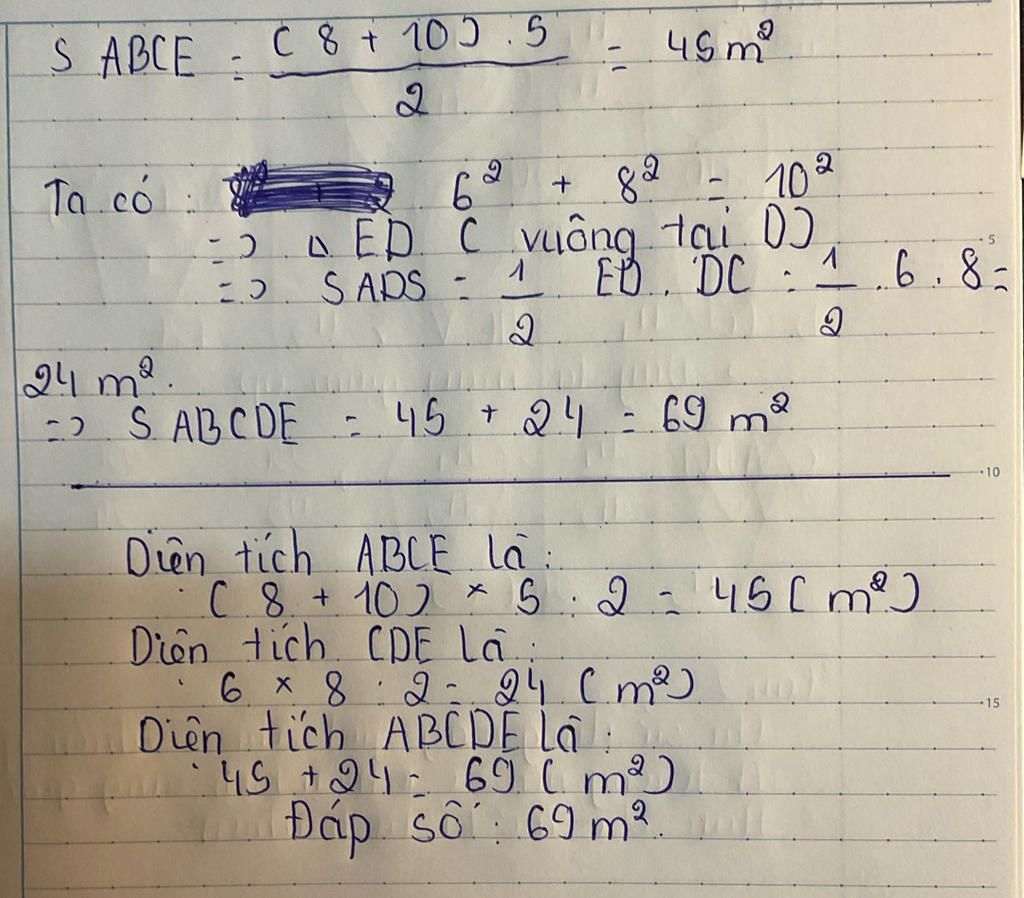 S ABCE = (8 + 10) . 5 / 2 = 45 m²
Ta có : 6² + 8² = 10²
=> Δ ED C vuông tại D)
=> S ADS = 1/2 ED . DC = 1/2 . 6 . 8 =
24 m².
=> S ABCDE = 45 + 24 = 69 m²
10
Diện tích ABCE là :
( 8 + 10) × 5 : 2 = 45 ( m²)
Diện tích CDE là :
6 × 8 : 2 = 24 ( m²)
15
Diện tích ABCDE là :
45 + 24 = 69 ( m²)
Đáp số : 69 m².